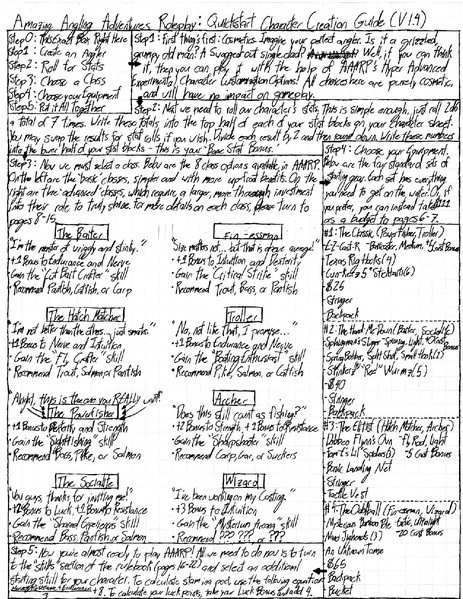 Amazing Angling Adventures Roleplay: Quickstart Character Creation Guide (V1.4)
Step 0: This Great Box Right Here
Step 1: Create an Angler
Step 2: Roll for Stats
Step 3: Choose a Class
Step 4: Choose your Equipment
Step 5: Put it All Together
Step 1: First thing's first: Cosmetics. Imagine your perfect angler. Is it a grizzled,
grumpy old man? A Swagged out single dad? Well, if you can think
it, then you can play it with the help of AAARP's Hyper Advanced
Experimental Character Customization Options! All choices here are purely cosmetic,
and will have no impact on gameplay.
Step 2: Next we need to roll our character's stats. This is simple enough, just roll 2d6
a total of 7 times. Write these totals into the top half of each of your stat blocks on your character sheet.
You may swap the results for stat rolls if you wish. Divide each result by 2 and then round down. Write these numbers
into the lower half of your stat blocks - this is your Base Stat Bonus.
Step 3: Now we must select a class. Below are the 8 class options available in AAARP.
On the left are the basic classes, simpler and with more upfront benefits. On the
right are the advanced classes, which require a larger, more thorough investment
into their role to truly shine. For more details on each class, please turn to
pages 8-15.
Step 4: Choose your Equipment.
Below are the four standard sets of
starting gear. Each set has everything
you need to get on the water. Or, if
you prefer, you can instead take $111
as a budget to pages 6-7.
The Baiter
"I'm the master of wriggly and stinky."
+1 Bonus to Endurance and Nerve
Gain the "Cut Bait Crafter" skill
Recommend Panfish, Catfish, or Carp
"Size matters not... but that is above average."
+1 Bonus to Intuition and Dexterity
Gain the "Critical Strike" skill
Recommend Trout, Bass, or Panfish
The Hatch Matcher
"I'm not better than the others... just smarter."
+1 Bonus to Nerve and Intuition
Gain the "Fly Crafter" skill
Recommend Trout, Salmon, or Panfish
Troller
"No, not like that, I promise..."
+1 Bonus to Endurance and Nerve
Gain the "Boating Enthusiast" skill
Recommend Pike, Salmon, or Catfish
"Alright, this is the one you REALLY want"
The Powerfisher
+1 Bonus to Dexterity and Strength
Gain the "Sightfishing" skill
Recommend Bass, Pike, or Salmon
Archer
"Does this still count as fishing?"
+2 Bonus to Strength, +1 Bonus to Resistance
Gain the "Sharpshooter" skill
Recommend Carp, Gar, or Suckers
The Socialite
"You guys, thanks for inviting me!"
+2 Bonus to Luck, +1 Bonus to Resistance
Gain the "Shared Experiences" skill
Recommend Bass, Panfish or Salmon
Wizard
"I've been working on my Casting."
+3 Bonus to Intuition
Gain the "Mysterium Arcana" skill
Recommend ???, ???, or ???
#1: The Classic (Powerfisher, Troller)
Texas Rig Hooks (4)
$25
Stringer
Backpack
#2: The Hand Me Down (Baiter, Socialite)
$40
Stringer
Backpack
#3: The Elitist (Hatch Matcher, Archer)
Basic Landing Net
Stringer
Tackle Vest
#4: The Oddball (Finessman, Wizard)
An Unknown Tome
$65
Backpack
Bucket
Step 5: Now you're almost ready to play AAARP! All we need to do now is to turn
to the "Skills" section of the rulebook (pages 16-22) and select an additional
starting skill for your character. To calculate stamina pool, use the following equation:
+8. To calculate your luck points, take your Luck Bonus and add 4.